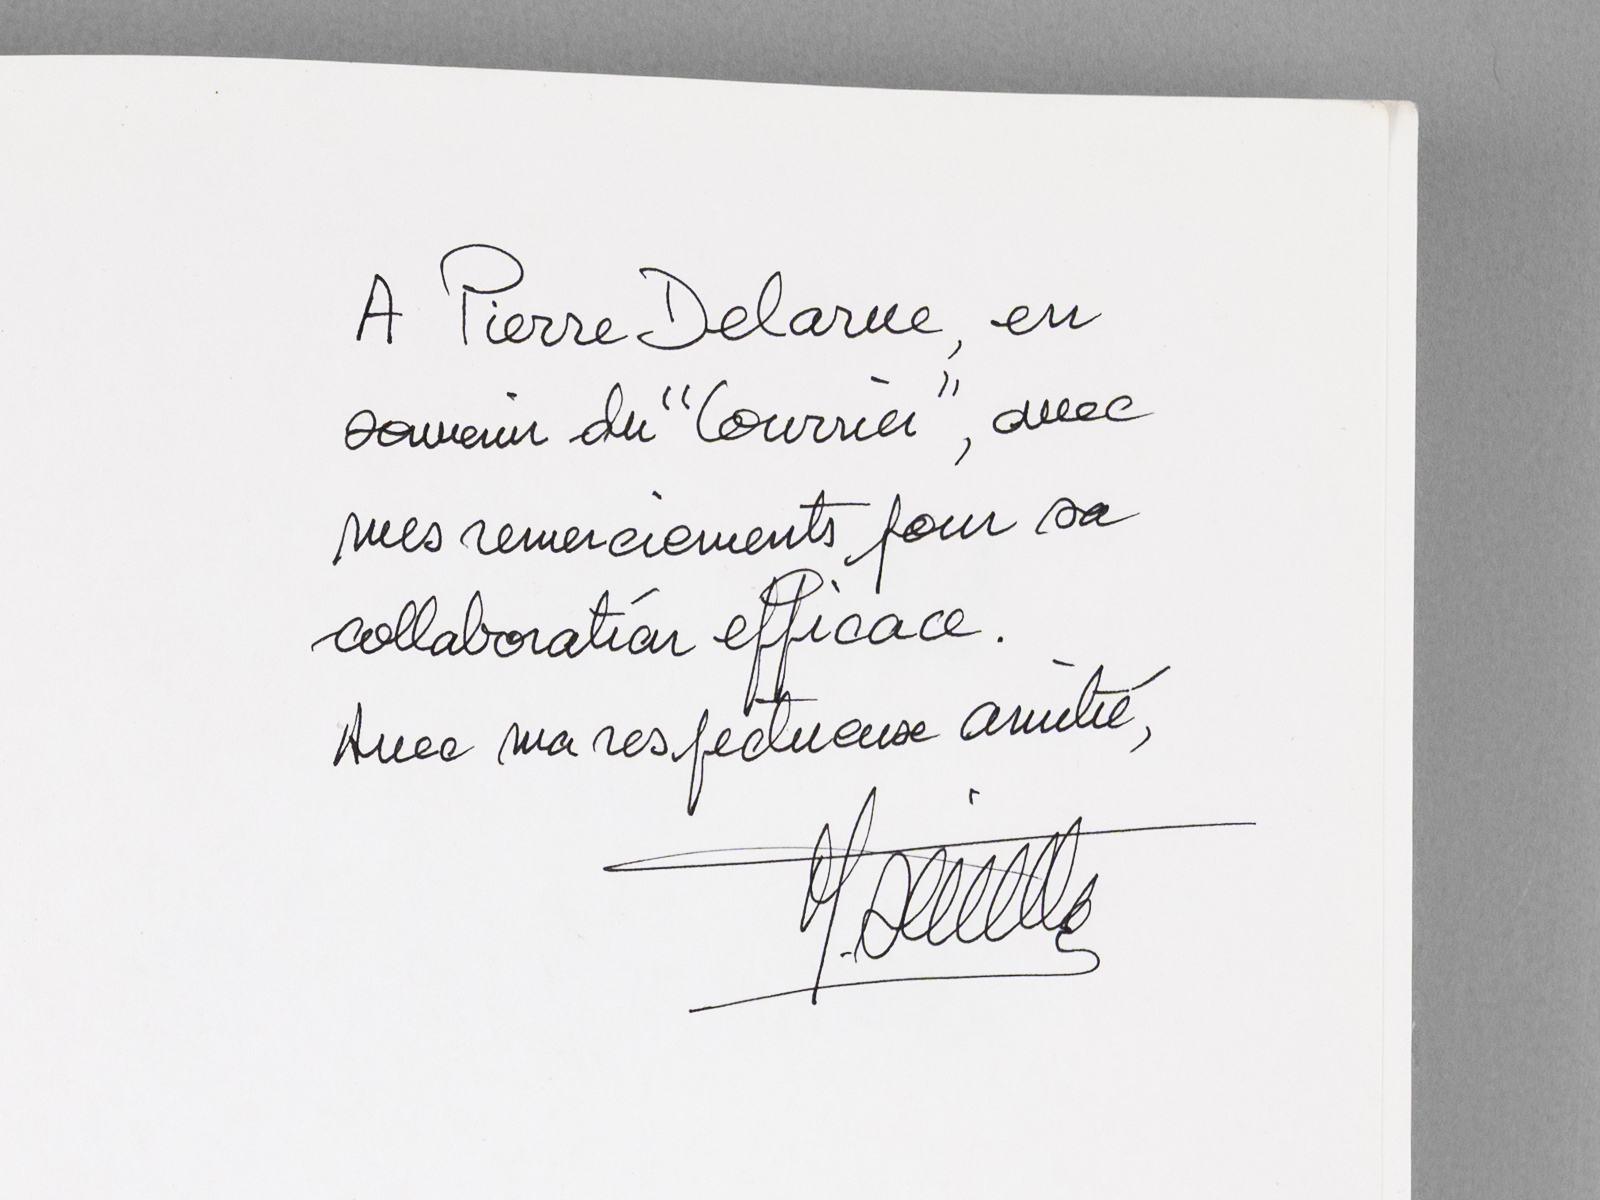 A Pierre Delarue, en
souvenir du "Courrier", avec
mes remerciements pour sa
collaboration efficace.
Avec ma respectueuse amitié,